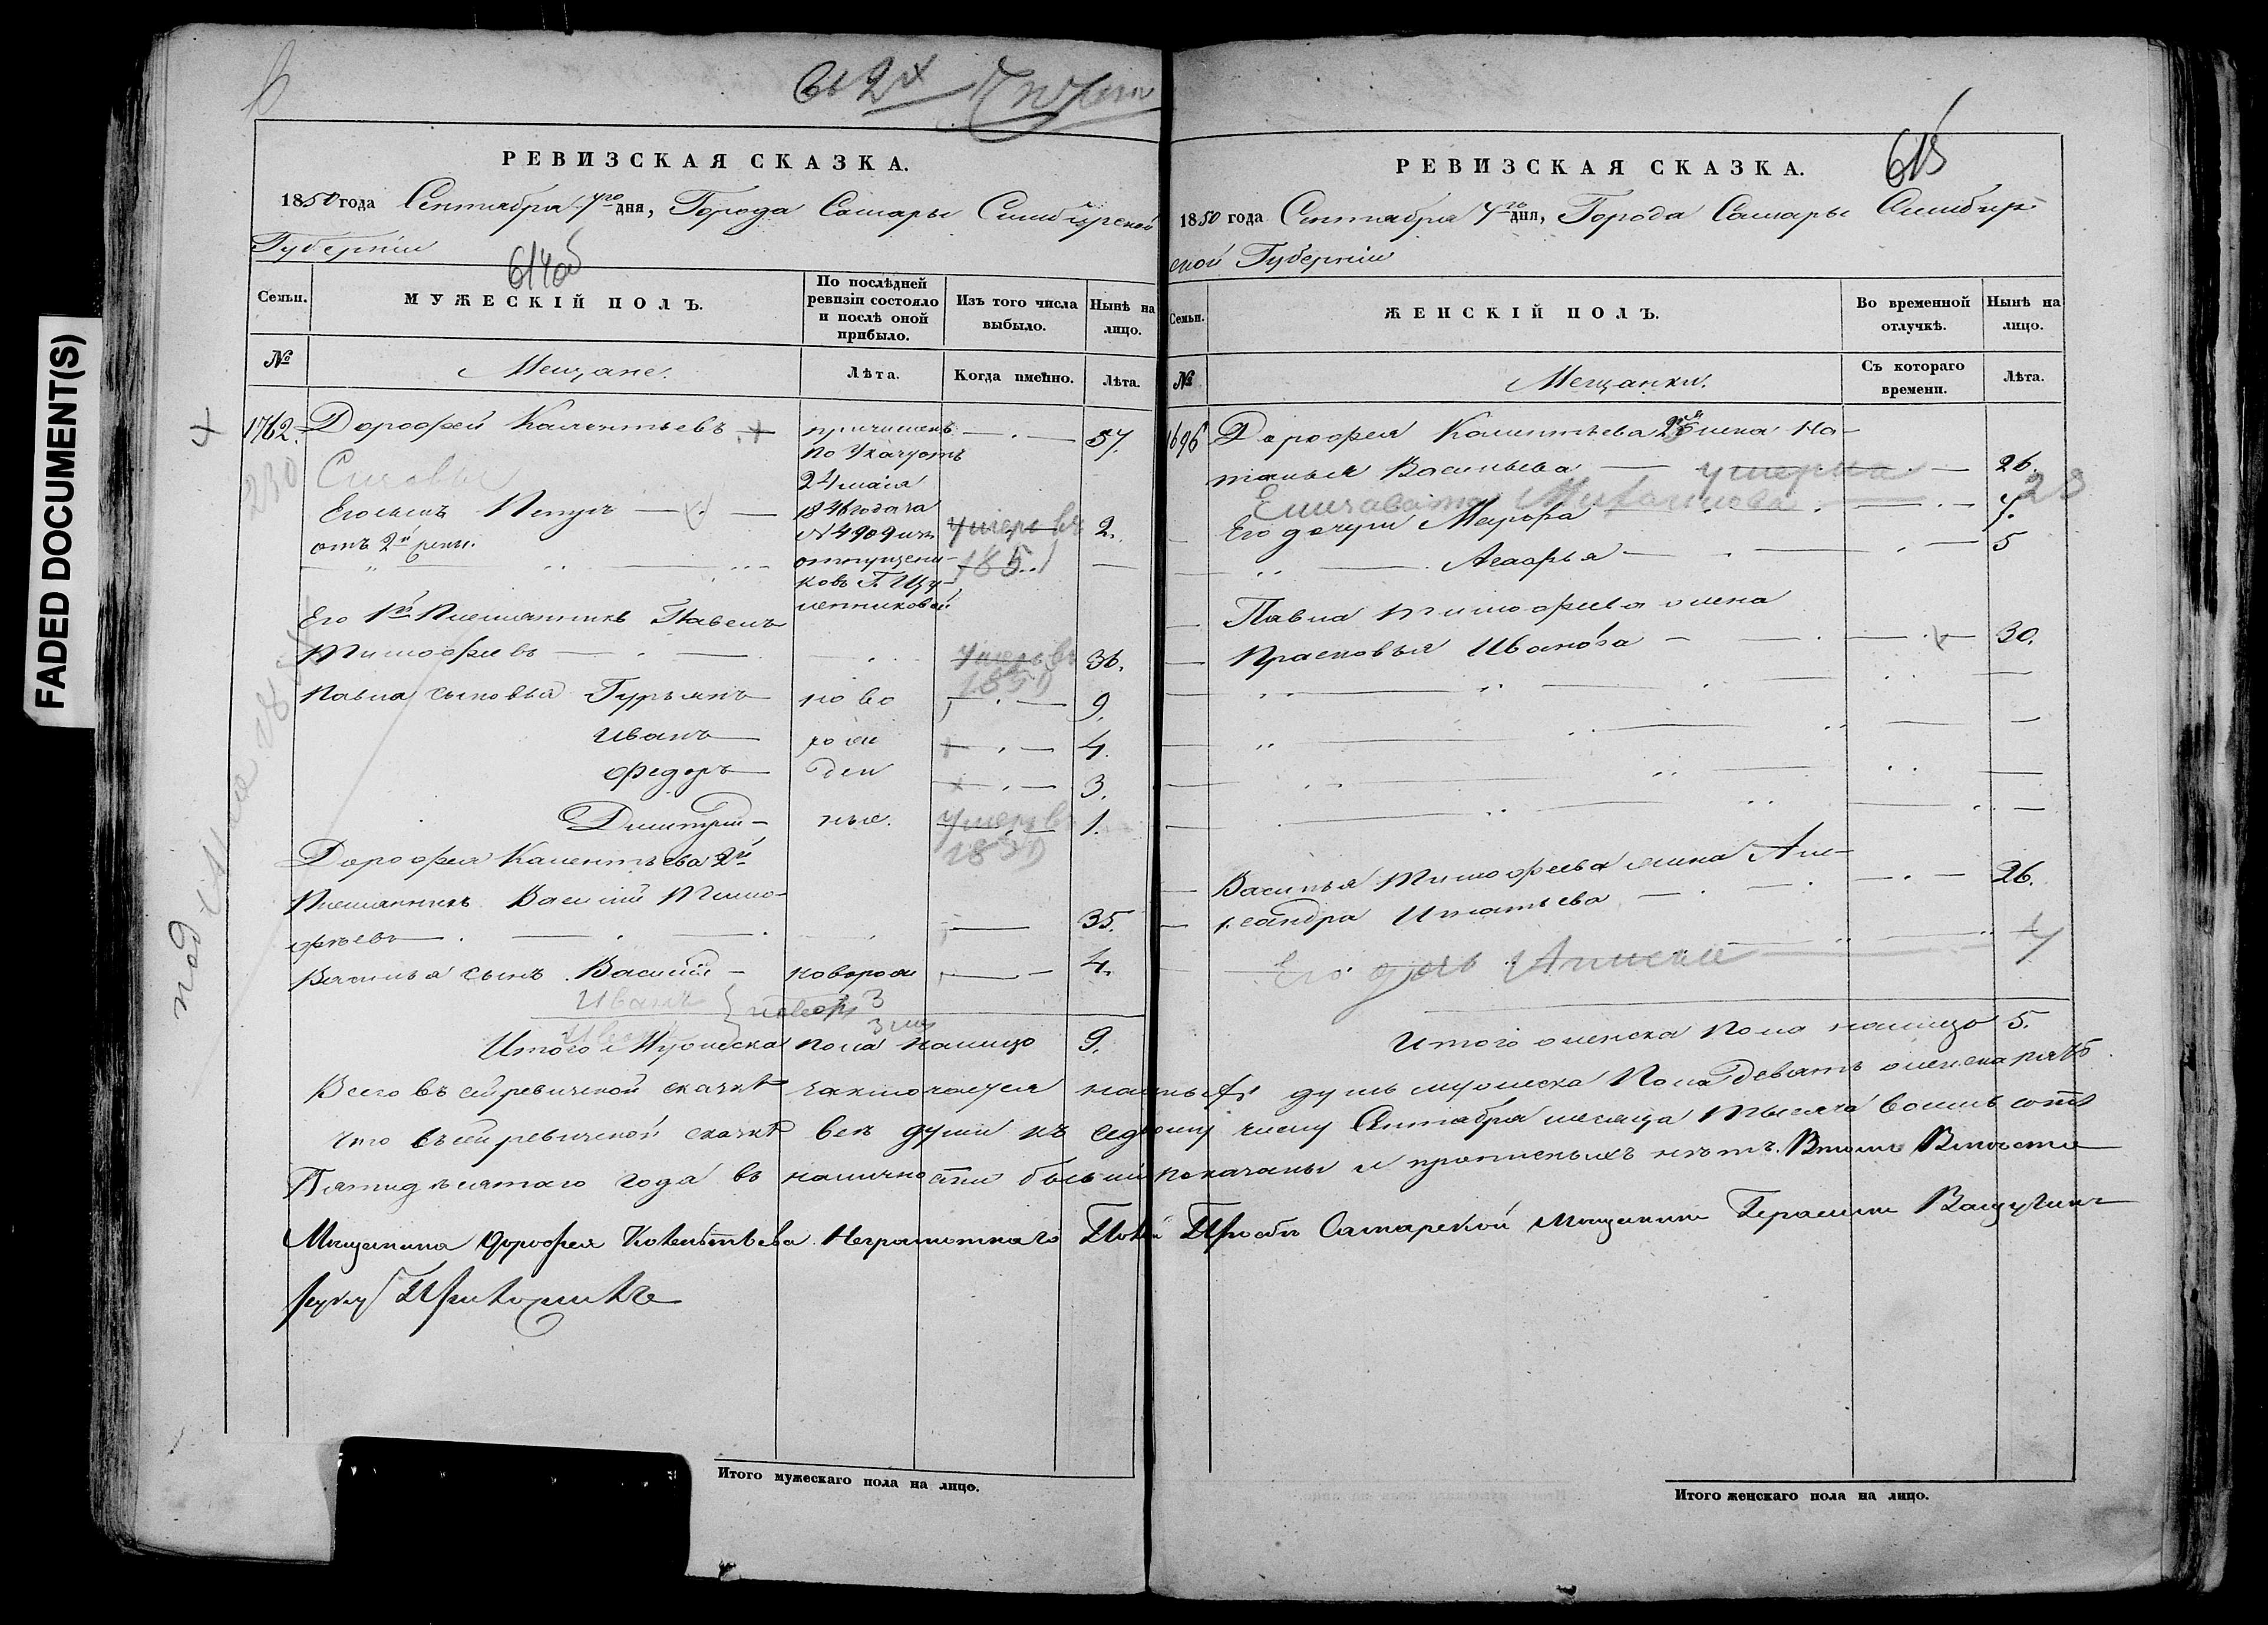 FADED DOCUMENT(S)
РЕВИЗСКАЯ СКАЗКА.
1850 года Сентября 7го дня, Города Самары Симбирской
Губерніи
614об
Семьи.
МУЖЕСКІЙ ПОЛЪ.
По послѣдней
ревизіи состояло
и послѣ оной
прибыло.
Изъ того числа
выбыло.
Нынѣ на
лицо.
№
Мещане.
Лѣта.
Когда именно.
Лѣта.
1762. Дорофей Калентьевъ причисленъ 57.
по Указу отъ
24 мая
Его сынъ Петръ 1846 года за умеръ въ 2.
отъ 2й жены. №4909 изъ 1851
отпущени-
ковъ Г.
Его 1й Племянникъ Павелъ
Тимофеевъ умеръ въ 36.
Павла сыновья Гурьянъ ново 9.
Иванъ рож 4.
Федоръ ден 3.
Димитрій ные. умеръ въ 1.
Дорофея Калентьева 2й
Племянникъ Василій Тимо-
фѣевъ 35.
Василья сынъ Василій новорож 4.
Иванъ 3
Итого Мужеска пола налицо 9.
230
4
РЕВИЗСКАЯ СКАЗКА.
615
1850 года Сентября 7го дня, Города Самары Симбир-
ской Губерніи
Семьи.
ЖЕНСКІЙ ПОЛЪ.
Во временной
отлучкѣ.
Нынѣ на
лицо.
№
Мещанки.
Съ котораго
времени.
Лѣта.
1696 Дорофея Калентьева 2я жена На-
талья Васильева умерла 26.
Елизавета 23
Его дочери Марфа 7.
Агафья 5
Павла Тимофеева жена
Прасковья Иванова 30.
Василья Тимофеева жена Але-
ксандра Игнатьева 26.
Его дочь
Итого женска пола налицо 5.
Всего въ сей ревизской сказкѣ заключается наличныхъ душъ мужеска пола девять женска пять
что въ сей ревизской сказкѣ все души къ седьмому числу Сентября месяца тысяча восемь сотъ
Пятидесятаго года въ наличности бывшія показаны и прописныхъ нѣтъ. Втомъ Вместо
Мещанина Дорофея Калентьева Неграмотнаго Поево Прозбе Самарской Мещанинъ Герасимъ
руку Приложилъ
Итого мужескаго пола на лицо.
Итого женскаго пола на лицо.